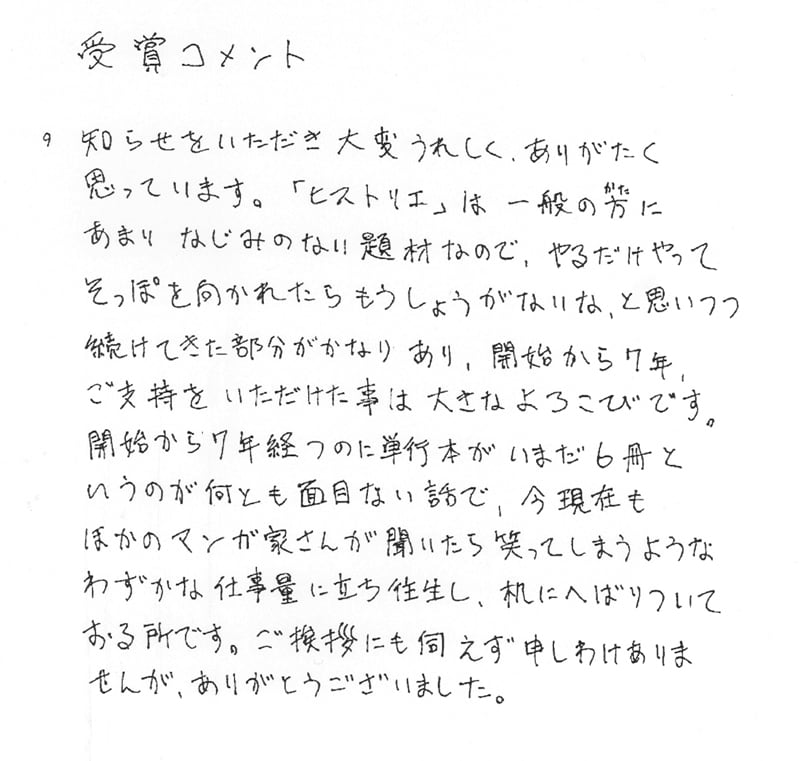 受賞コメント
知らせをいただき大変うれしく、ありがたく
思っています。「ヒストリエ」は一般の方に
かた
あまりなじみのない題材なので、やるだけやって
そっぽを向かれたらもうしょうがないな、と思いつつ
続けてきた部分がかなりあり、開始から7年、
ご支持をいただけた事は大きなよろこびです。
開始から7年経つのに単行本がいまだ6冊と
いうのが何とも面目ない話で、今現在も
ほかのマンガ家さんが聞いたら笑ってしまうような
わずかな仕事量に立ち往生し、机にへばりついて
おる所です。ご挨拶にも伺えず申しわけありま
せんが、ありがとうございました。